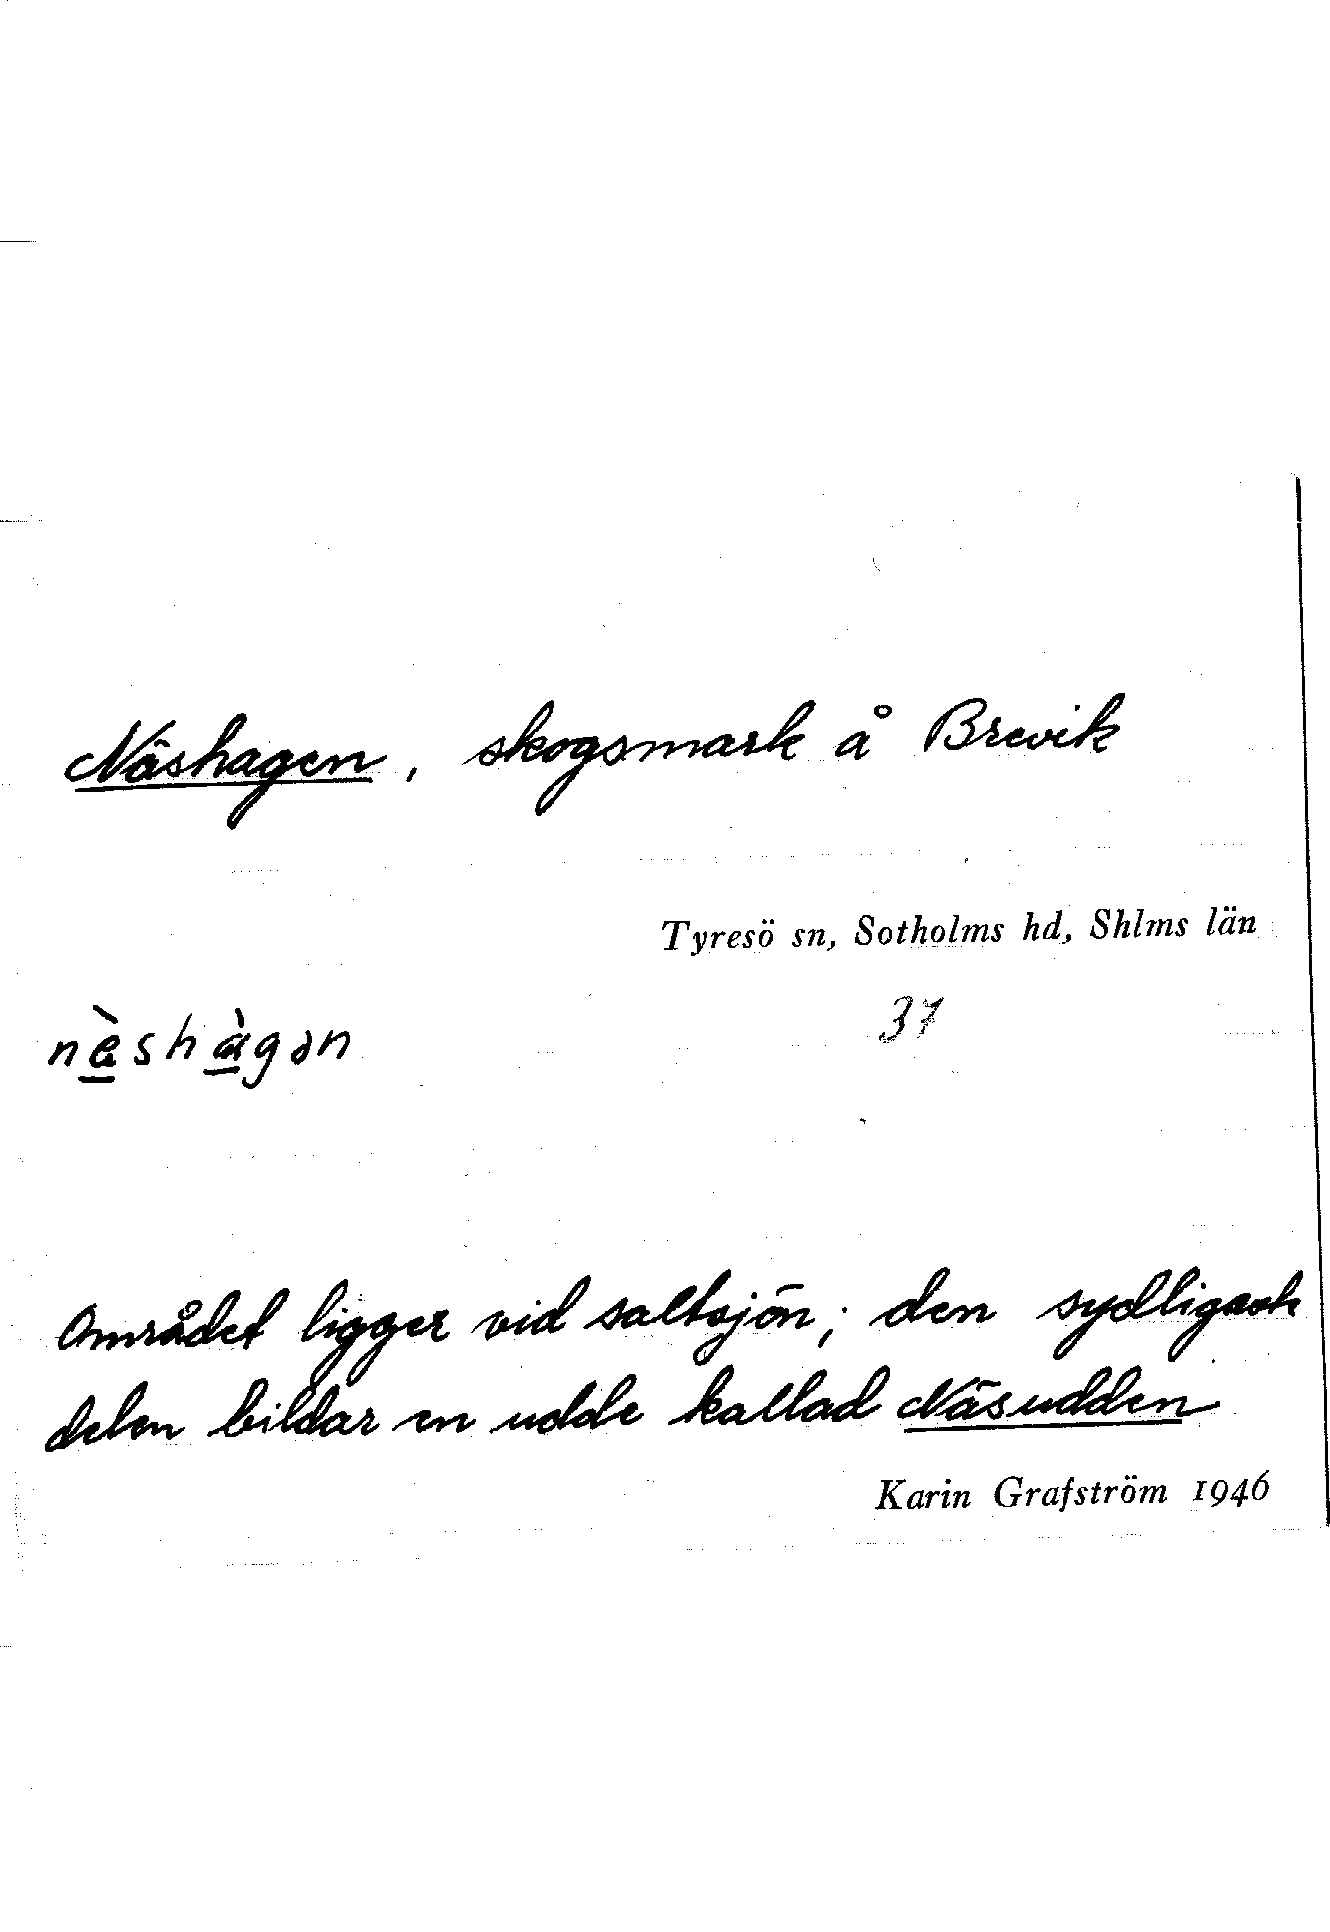 Näshagen, skogsmark å Brevik
Tyresö sn, Sotholms hd, Shlms län
37
nèshàgən
Området ligger vid saltsjön; den sydligaste
delen bildar en udde kallad Näsudden
Karin Grafström 1946